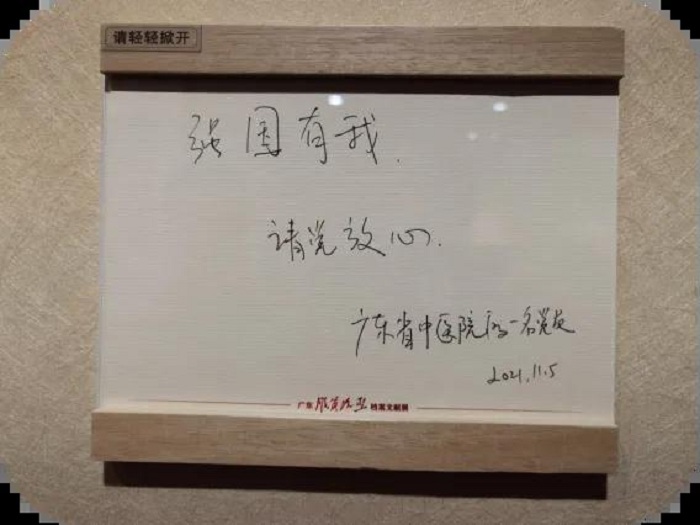 请轻轻掀开
强国有我.
请党放心.
广东省中医院的一名党员
2021.11.5
广东 档案文献展